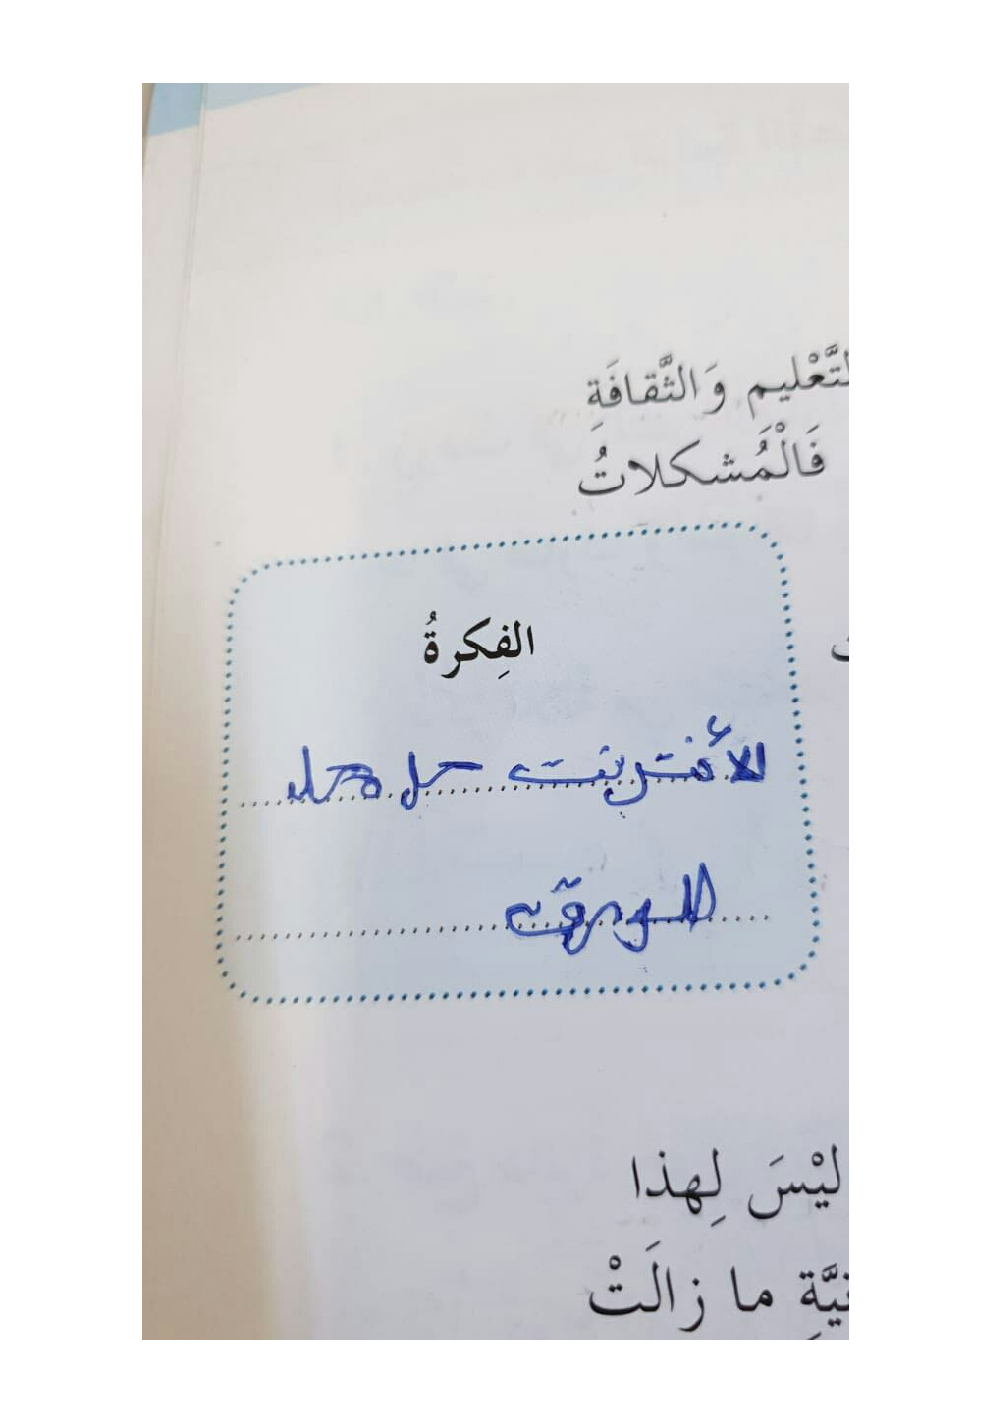 لتَّعْليم وَالثَّقافَةِ
فَالْمُشكلاتُ
الفِكرةُ
الأنترنت حل محل
الورق
لَيْسَ لِهذا
نيَّةِ ما زالَتْ